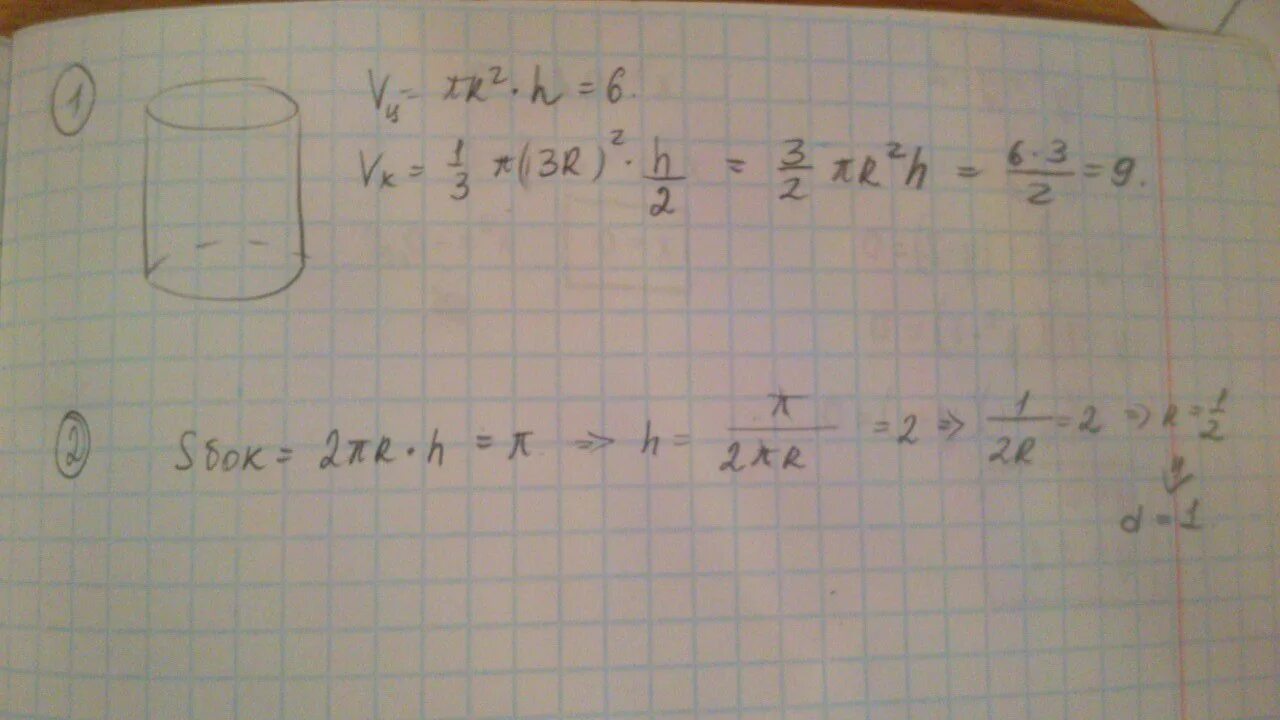 1 Vц = πR² · h = 6.
Vк = 1/3 π(3R)² · h/2 = 3/2 πR²h = 6·3/2 = 9.
2 Sбок = 2πR · h = π ⇒ h = π/2πR = 2 ⇒ 1/2R = 2 ⇒ R = 1/2
⇓
d = 1